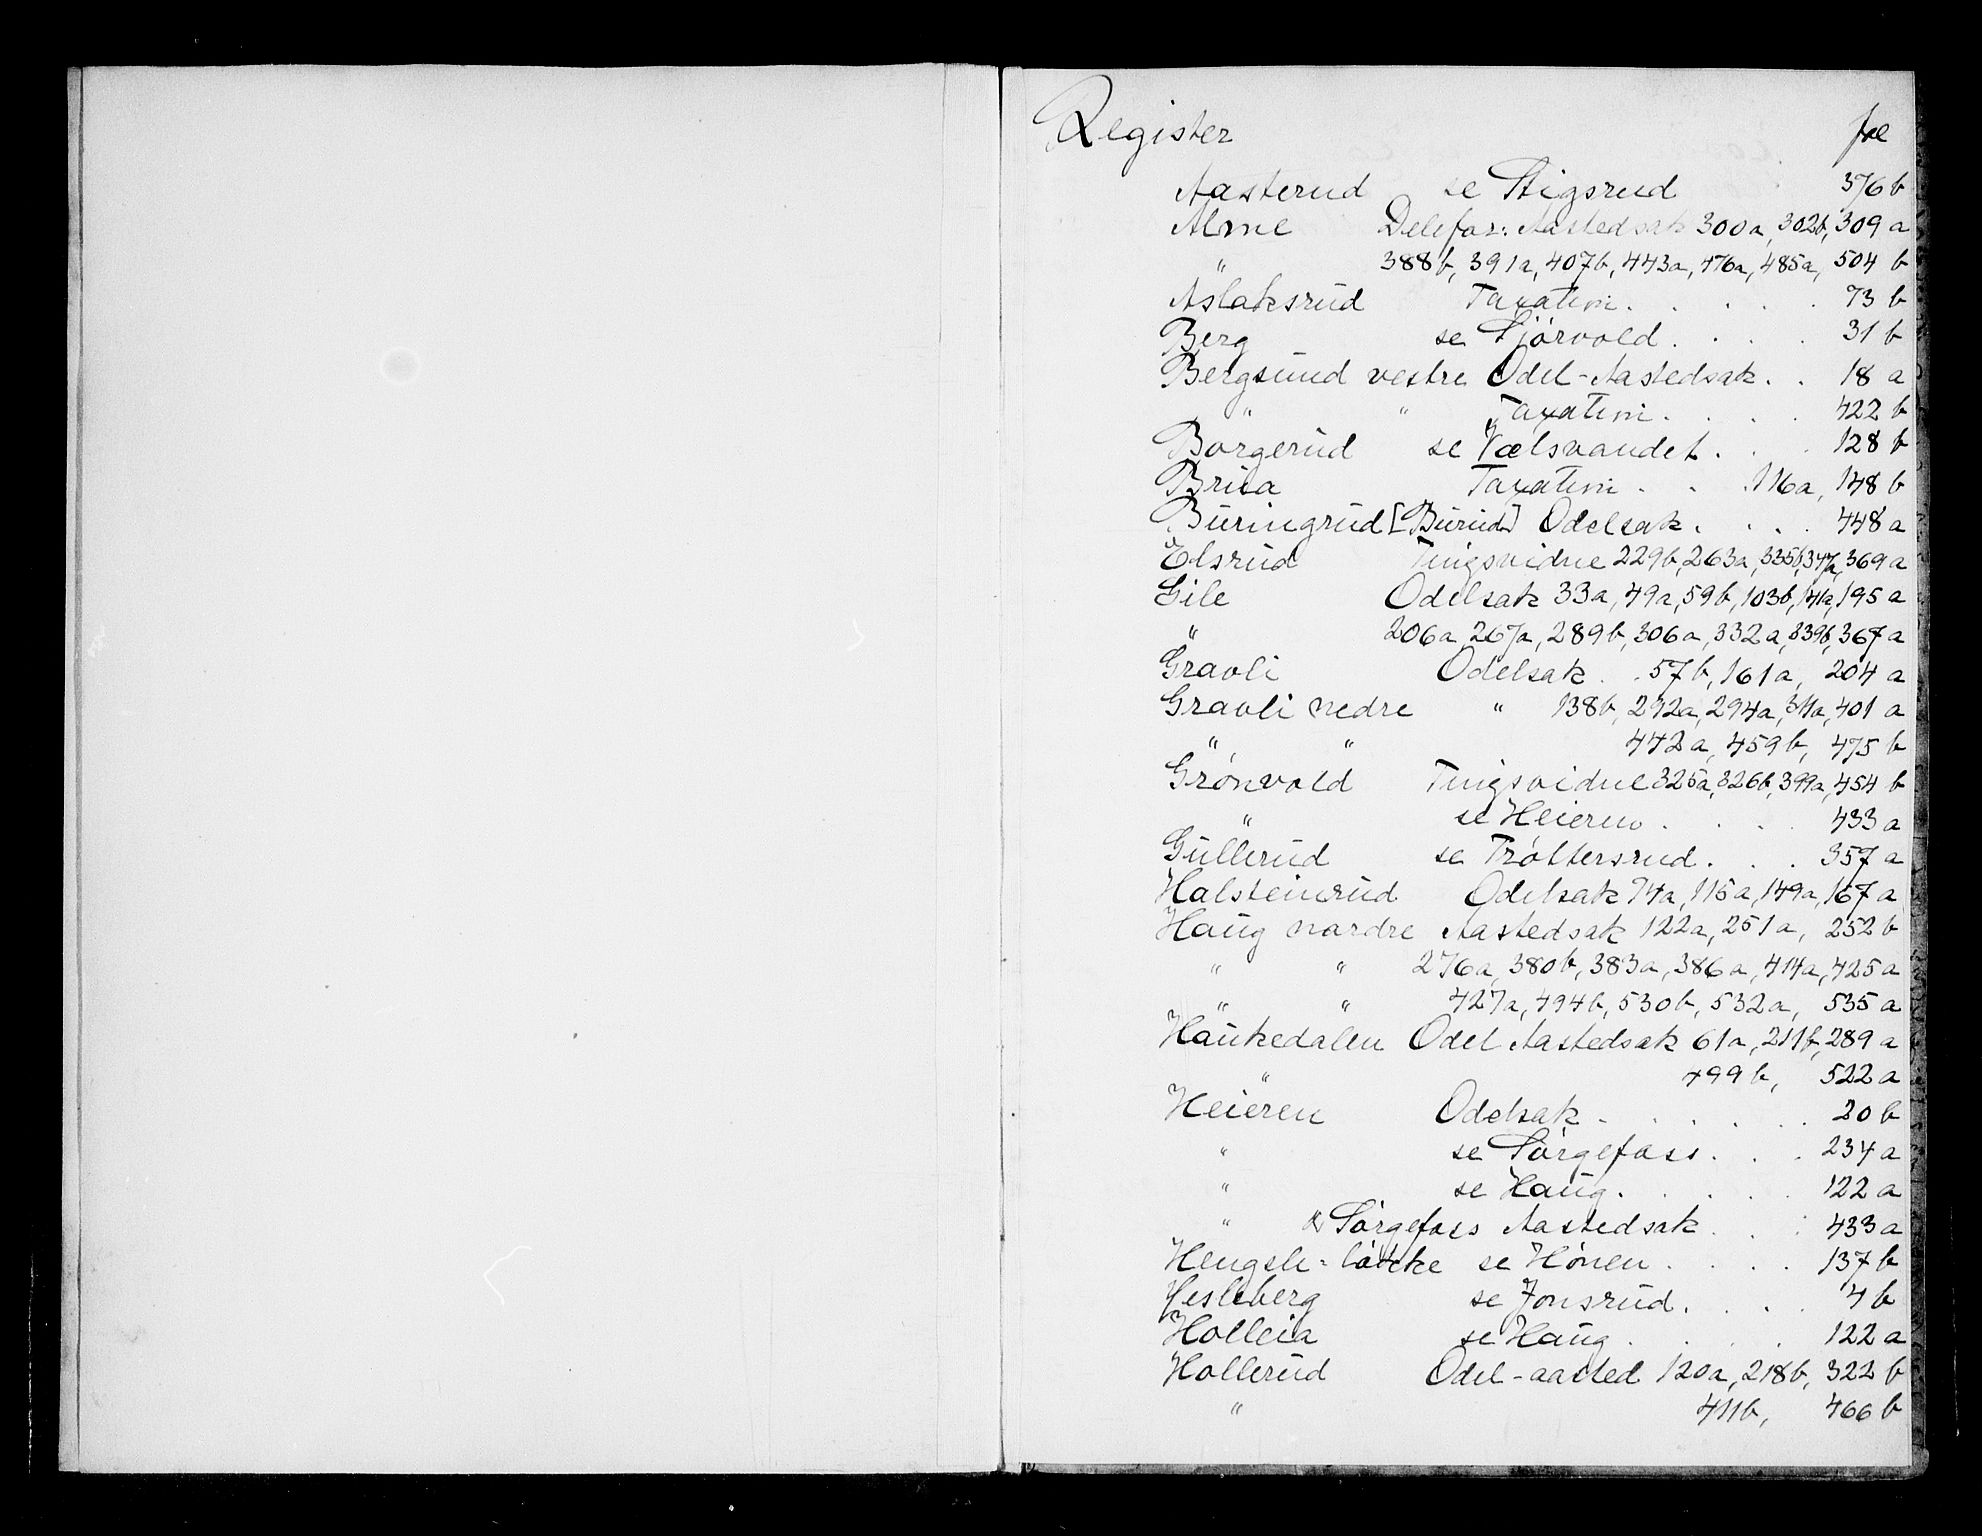 Register fol
Aasterud se Stigsrud 376 b
Alme Delefor: Aastedsak 300a, 302b, 309 a
" 388b, 391a, 407b, 443a, 476a, 485a, 504 b
Aslaksrud Taxation . . . . . 73 b
Berg se Sjørvold . . . . 31 b
Bergsund vestre Odel-Aastedsak . . 18 a
" " Taxation . . . . 422 b
Borgerud se Vælsvandet . . . 128 b
Brua Taxation . . . 116a, 148 b
Buringrud [Burud] Odelsak . . . . 448 a
Elsrud Tingsvidne 229b, 263a, 335b, 347a, 369 a
Gile Odelsak 33a, 49a, 59b, 103b, 141a, 195 a
" 206a, 267a, 289b, 306a, 332a, 339b, 367 a
Gravli Odelsak . . 57b, 161a, 204 a
Gravli nedre " 138b, 292a, 294a, 311a, 401 a
" " 442a, 459b, 475 b
Grønvold Tingsvidne 325a, 326b, 399a, 454 b
" se Heieren . . . . 433 a
Gullerud se Trøttersrud . . . 357 a
Halsteinrud Odelsak 74a, 115a, 149a, 167 a
Haug nordre Aastedsak 122a, 251a, 252 b
" " 276a, 380b, 383a, 386a, 414a, 425 a
" " 427a, 494b, 530b, 532a, 535 a
Haukedalen Odel Aastedsak 61a, 211b, 289 a
" 499b, 522 a
Heieren Odelsak . . . . . . 20 b
" se Sørgefoss . . . 234 a
" se Haug . . . . . 122 a
" & Sørgefoss Aastedsak . . . 433 a
Hengsle-løkke se Hønen . . . . 137 b
Hesleberg se Jonsrud . . . . 4 b
Holleia se Haug . . . . 122 a
Hollerud Odel-aasted 120a, 218b, 322 b
" 411b, 466 b